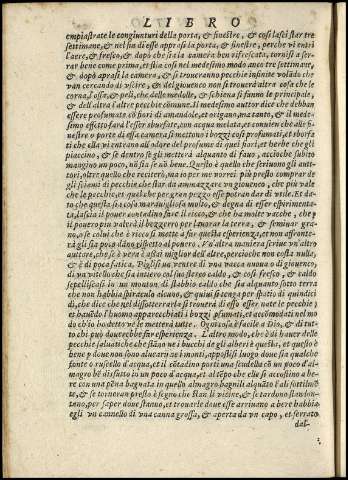 LIBRO
empiastrate le congiunture della porta, & finestre, & cosi lasci star tre
settimane, & nel fin di esse aprasi la porta, & finestre, perche vi entri
l'aere, & fresco, & dopò che sia la camera ben rifrescata, tornisi a ser-
rar bene come prima, et stia cosi nel medesimo modo anco tre settimane,
& dopò aprasi la camera, & si troueranno pecchie infinite volãdo che
van cercando di vscire, & del giouenco non si trouerà altra cosa che le
corna, l'ossa, & peli, che delle medolle, & schiena si fanno le principale,
& dell'altra l'altre pecchie comune. Il medesimo auttor dice che debban
essere profumate cõ fiori di amandole, et origano, ma tanto, & il mede-
simo effetto farà l'esser sborofate, con acqua melata, et conuien che alle fi-
nestre o porte di essa camera si mettono i bozzi cosi profumati, et sborfa
ti che ella vi entrano all'odore del profumo di quei fiori, et herbe che gli
piaccino, & se dentro se gli metterà alquanto di fauo, accioche subito
mangino un poco, nõ sia se nõ bene. Questo è quello che scriuono gli auit-
tori, oltre quello che reciterò, ma io per me vorrei più presto comprar de
gli sciami di pecchie che star da ammazzare vn giouenco, che più vale
che le pecchie, et qualche per gran prezzo esse potran dar di vtile. Et da-
to che questa sia cosa marauigliosa molto, & degna di esser esperimenta-
ta, lascia il pouer contadino fare il ricco, & che ha molte vacche, che p
il pouero piu valerà il begzerro per lauorar la terra, & seminar gra-
no, ose colui che è ricco si metta a far questa esperienza, et non affronte-
rà gli sia poco dãno rispetto al ponero. Vn'altra maniera scriue vn'altro
autore, che se è vera è assai miglior dell'altre, perciòche non costa nulla,
& è di poca fatica. Piglisi un ventre di vna vacca ouuno o di giouenco,
di vn vitello che sia intiero col suo sterco caldo, & cosi fresco, & caldo
sepelliscasi in un monton di stabbio caldo che sia alquanto sotto terra
che non habbia spiraculo alcuno, & quiui si tenga per spatio di quindici
dì, che dice che nel dissotterrarlo si trouerà in esso esser nate le pecchie,
et hauẽdo l'huomo apparecchiati i bozzi plumati, et accõmodati nel mo
do ch'io ho detto ve le metterà tutte. Ogni cosa è facile a Dio, & di tut-
to chi può douerebbe far esperienza. L'altro modo, che è di hauer delle
pecchie saluatiche che stanno ne i bucchi de gli alberi è questo, et questo è
bene p doue non sono aluearij ne i monti, appostisi luogo doue sia qualche
fonte o ruscello d'acqua, et il cõtadino porti una scudella cõ un poco d'al-
magro bẽ disfatto in un poco d'acqua, et al tẽpo che elle si accostino a be-
re con una pẽna bagnata in quello almagro bagnili alquãto l'ali sottilmẽ
te, & se tornaran presto è segno che stan li vicine, & se tardono stan lon-
tano, per saper doue stanno, et trouarle doue esse arriuano a bere habbia
egli vn cannello di vna canna grossa, & aperta da vn capo, et serrato
dal-